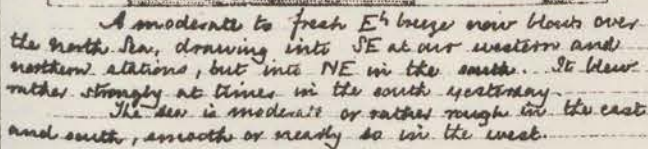 A moderate to fresh Eh breeze now blows over
the north Sea, drawing into SE at our western and
northern stations, but into NE in the south. It blew
rather strongly at times in the south yesterday.
The sea is moderate or rather rough in the east
and south, smooth or nearly so in the west.